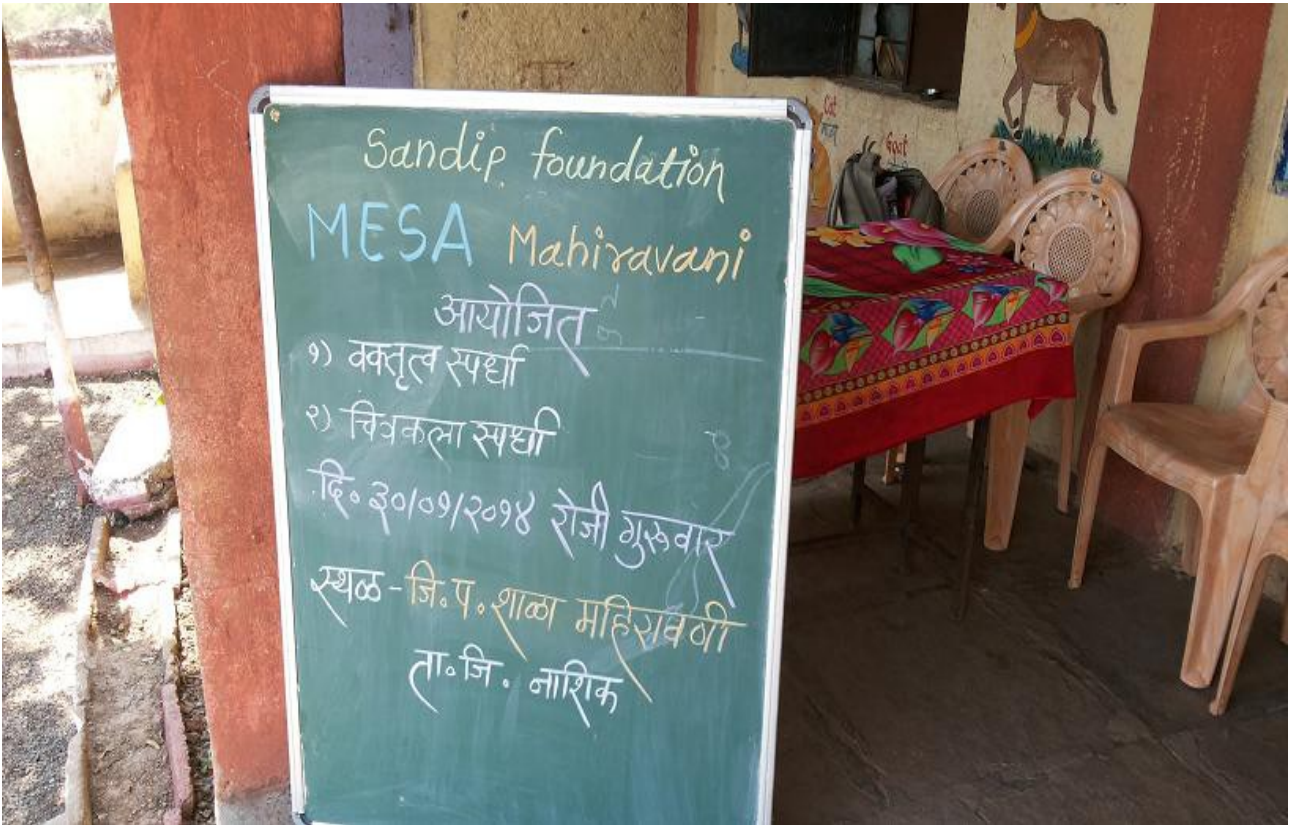 Sandip foundation
MESA Mahiravani
आयोजित
१) वक्तृत्व स्पर्धा
२) चित्रकला स्पर्धा
दि. ३०/०१/२०१४ रोजी गुरूवार
स्थळ - जि.प. शाळा महिरावणी
ता. जि. नाशिक
Cat
Goat